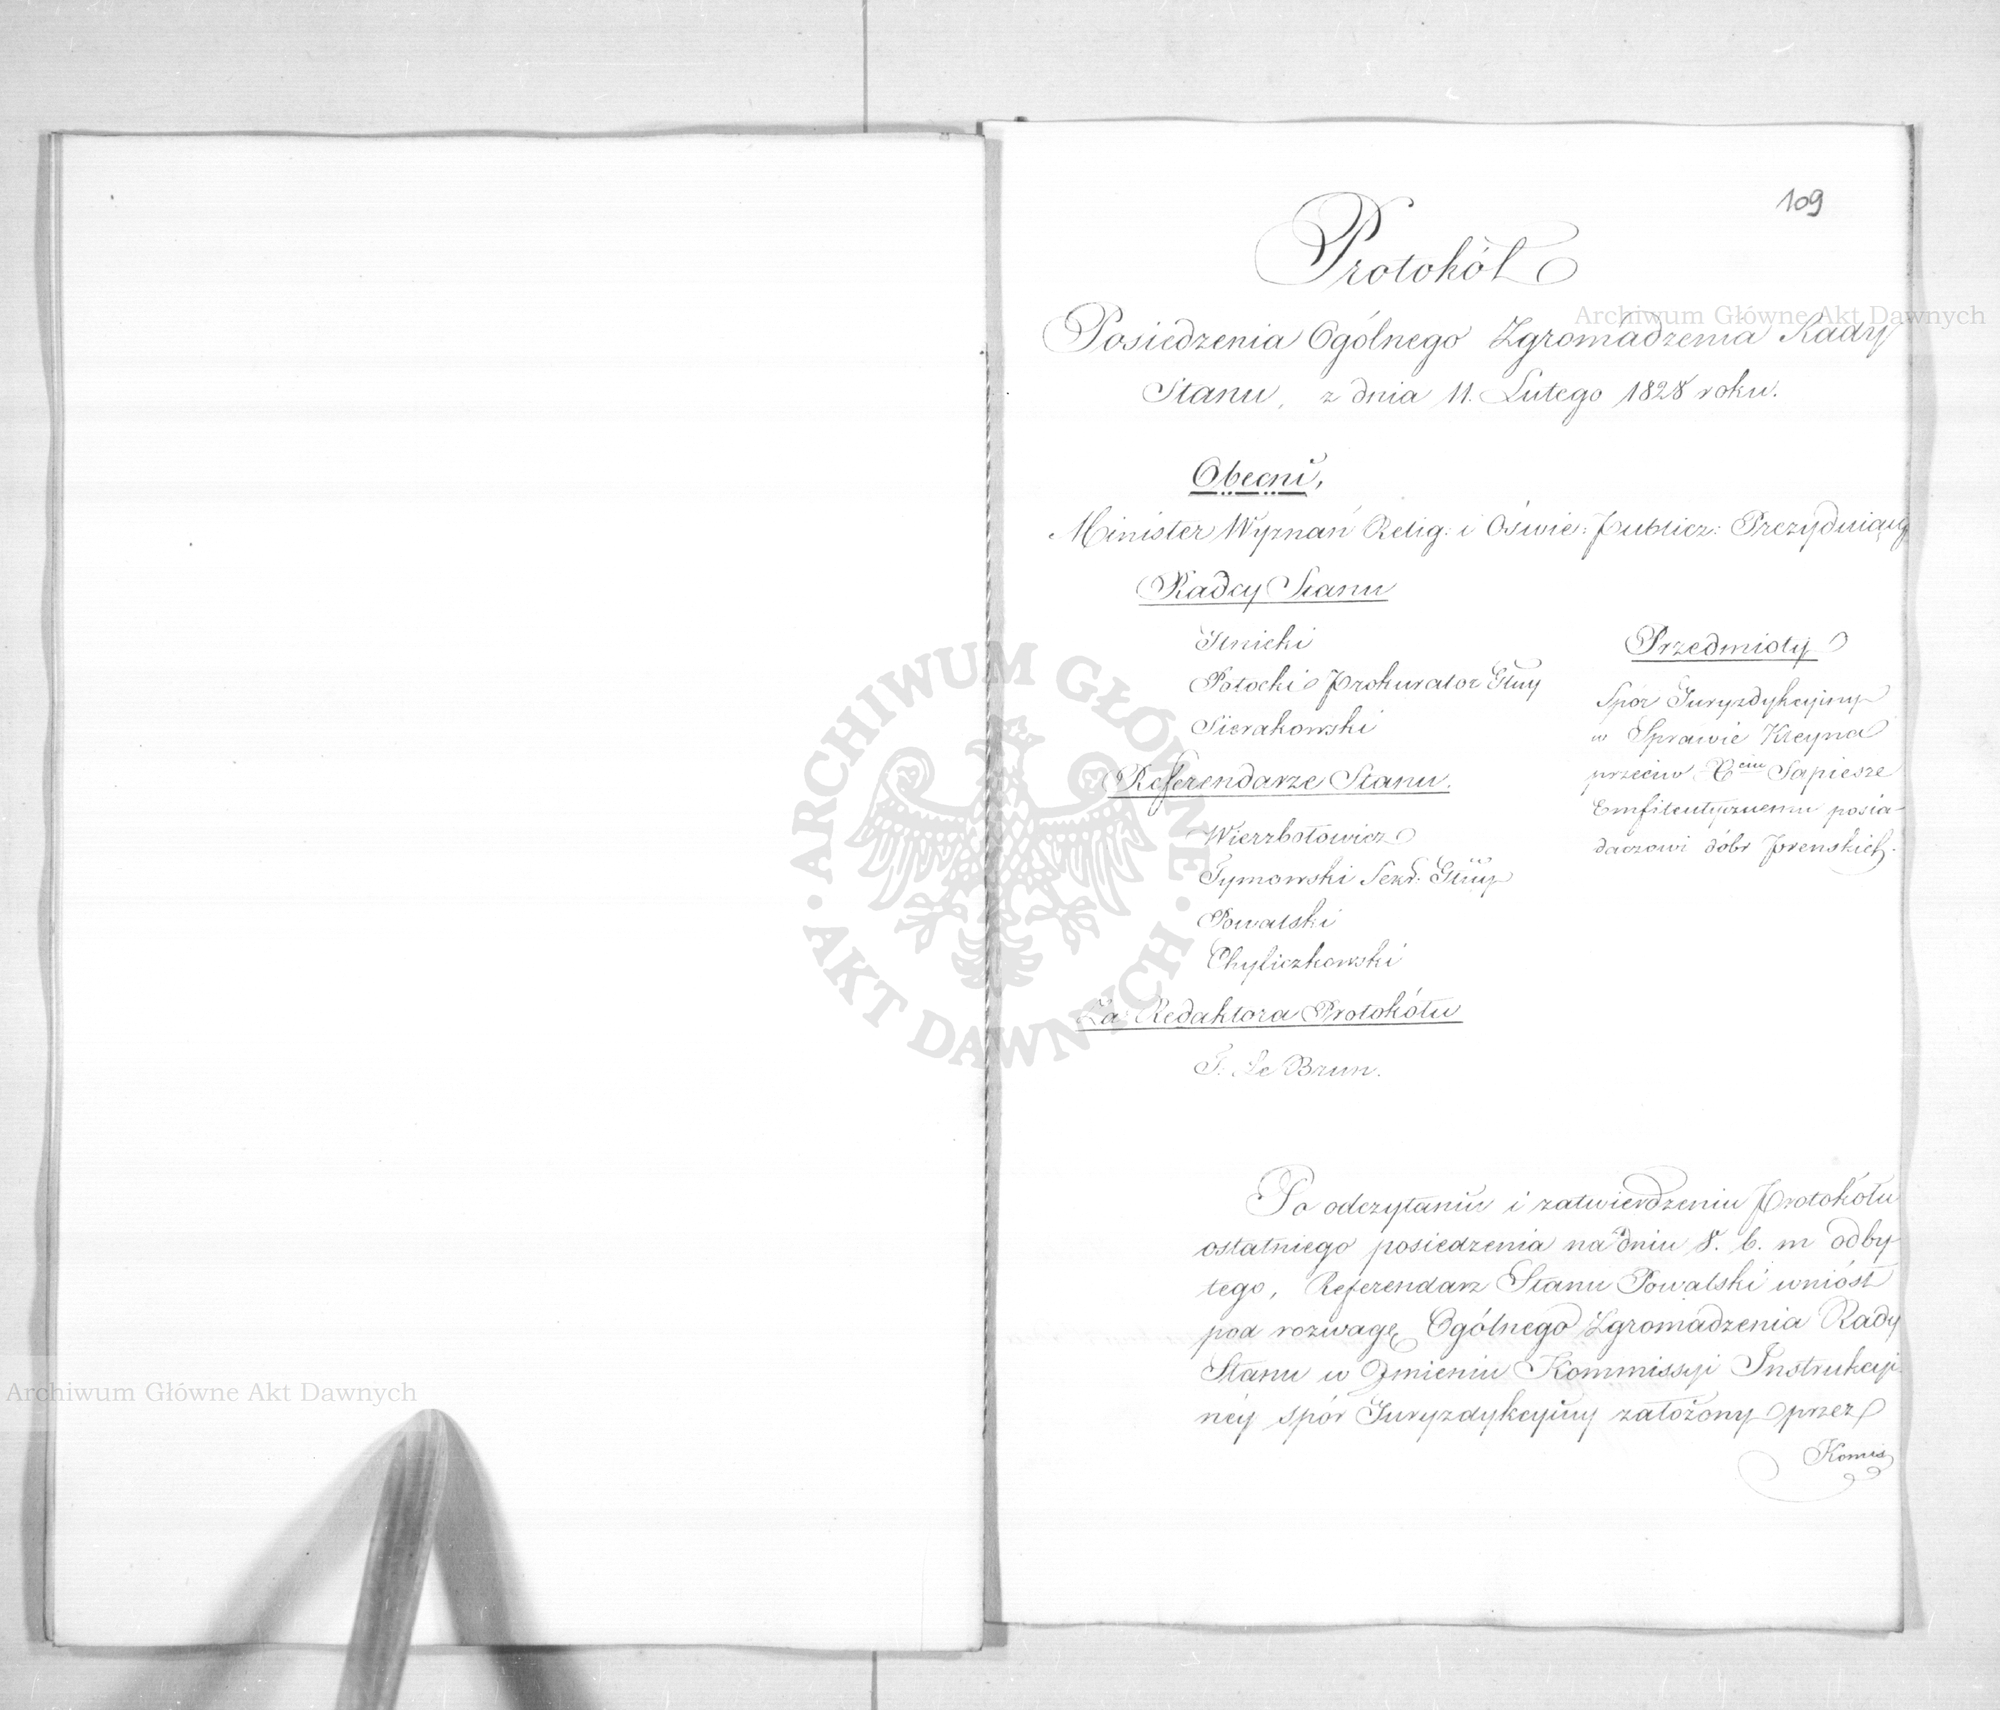 109
Protokół
Posiedzenia Ogólnego Zgromadzenia Rady
Stanu, z dnia 11. Lutego 1828 roku.
Obecni,
Minister Wyznań Relig: i Oświe: Publicz: Prezyduiący
Radcy Stanu
Ilnicki
Potocki Prokurator Głny
Sierakowski
Referendarze Stanu.
Wierzbołowicz
Tymowski Sekr. Głny
Powalski
Chyliczkowski
Za Redaktora Protokółu
T. Le Brun.
Przedmioty
Spór Juryzdykcyiny
w Sprawie Kleyna
przeciw Xciu Sapieże
Emfiteutycznemu posia-
daczowi dóbr Prenskich.
Po odczytaniu i zatwierdzeniu Protokółu
ostatniego posiedzenia na dniu 8. b. m odby-
tego, Referendarz Stanu Powalski wniósł
pod rozwagę Ogólnego Zgromadzenia Rady
Stanu w Imieniu Kommissyi Instrukcyi-
néy spór Juryzdykcyiny założony przez
Komis
Archiwum Główne Akt Dawnych
Archiwum Główne Akt Dawnych
ARCHIWUM GŁÓWNE
AKT DAWNYCH